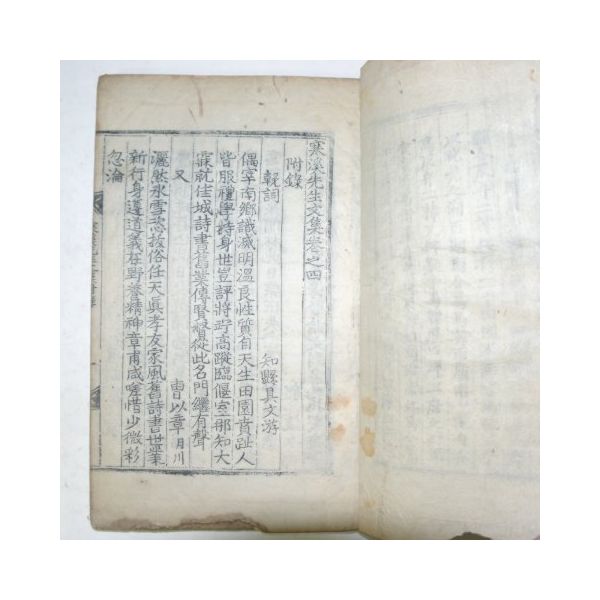 寒溪先生文集卷之四
附錄
輓詞
知縣具文游
偶宰南鄉識滅明溫良性質自天生田園賁趾人
皆服禮學持身世豈評將㝵高蹤臨偃室那知大
寐就佳城詩書舊業傳賢督從此名門繼有聲
又
曹以章月川
灑然氷雪态拔俗任天眞孝友家風舊詩書世業
新行身遵道義在野養精神章甫咸嗟惜少微彩
忽淪